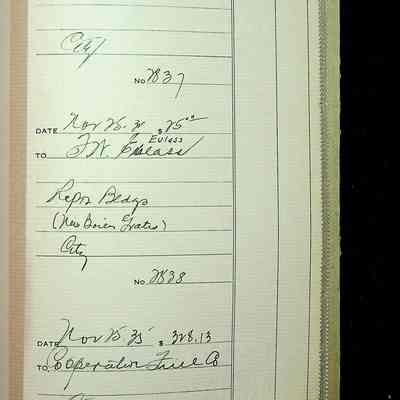 City
No 2837
DATE Nov 25. 31 $ 25.00
Eulass
TO F.W. Eulass
Repr Bldgs
(New Boiler Grates)
City
No 2838
DATE Nov 25. 35 $ 328.13
TO Cooperative Fuel Co